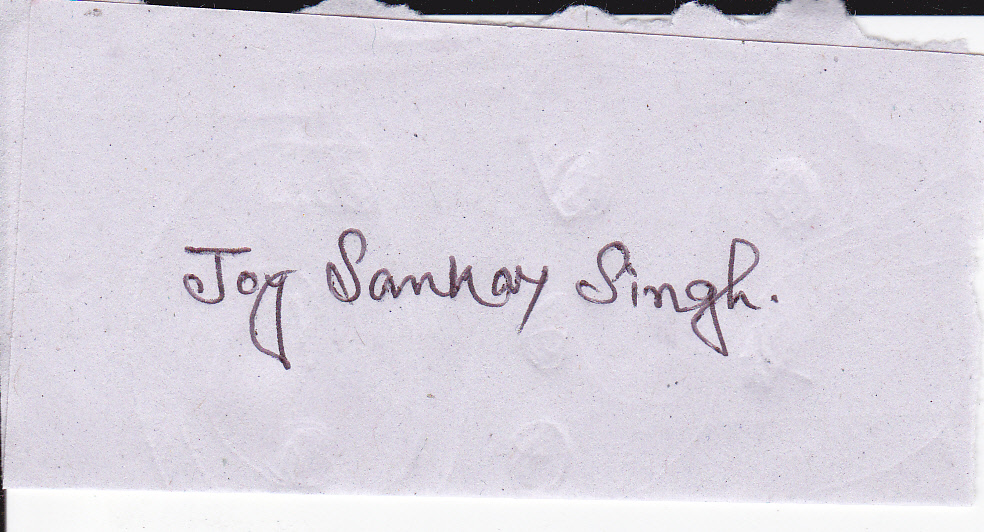 Joy Sankar Singh.